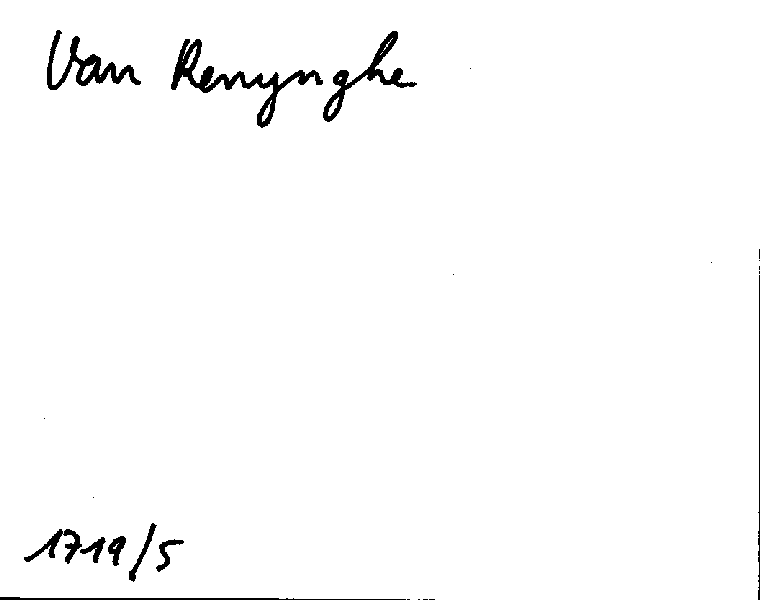 Van Renynghe
1719/5